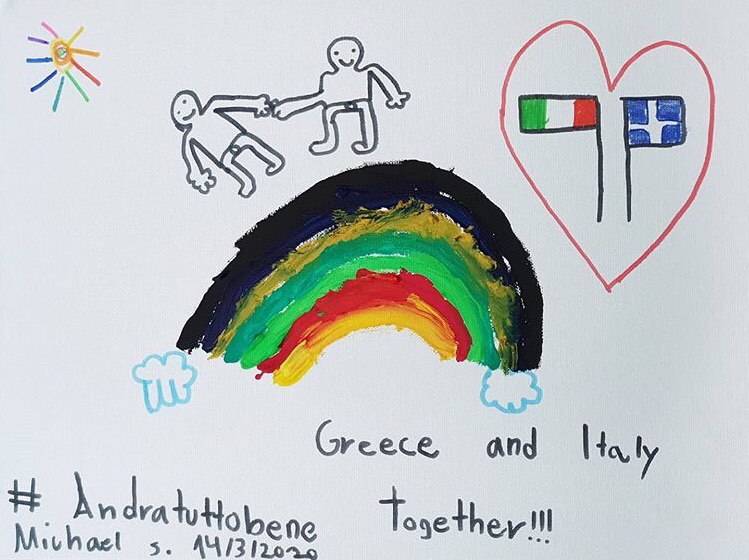 Greece and Italy
Together!!!
# Andratuttobene
Michael s. 14/3/2020